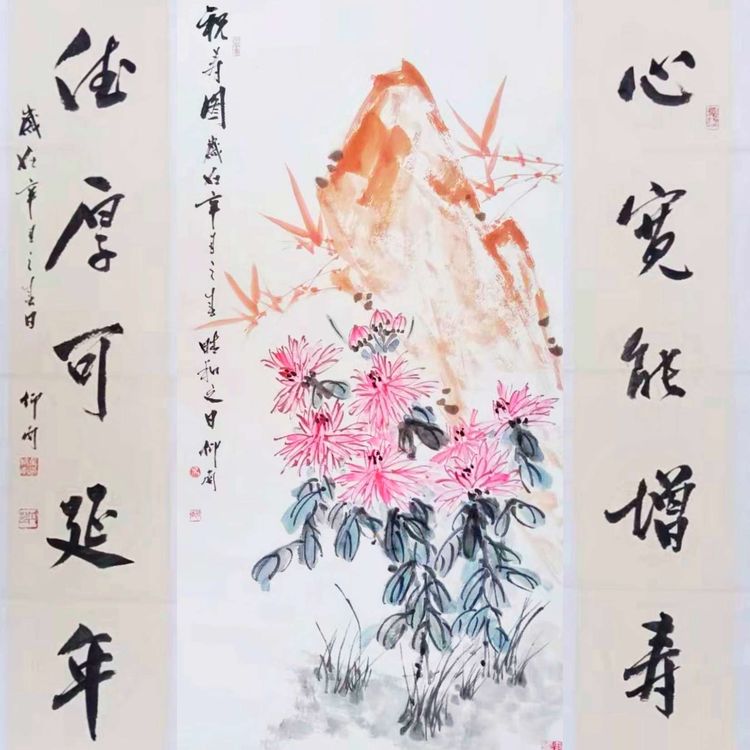 心宽能增寿
祝寿图 岁在辛丑之春 晴和之日 仰
德厚可延年
岁在辛丑之春日 仰